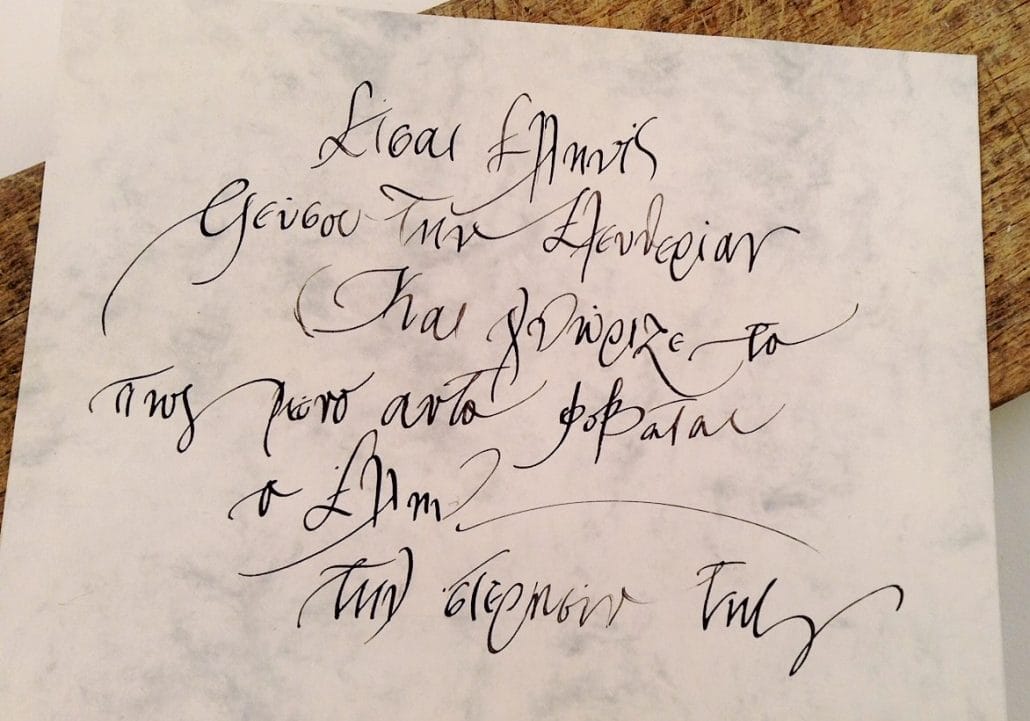 Είσαι Ελληνίς
Γεύσου την Ελευθερίαν
Και γνώριζε το
πως μονο αυτο φοβαται
ο Ελλην
την στερησιν της